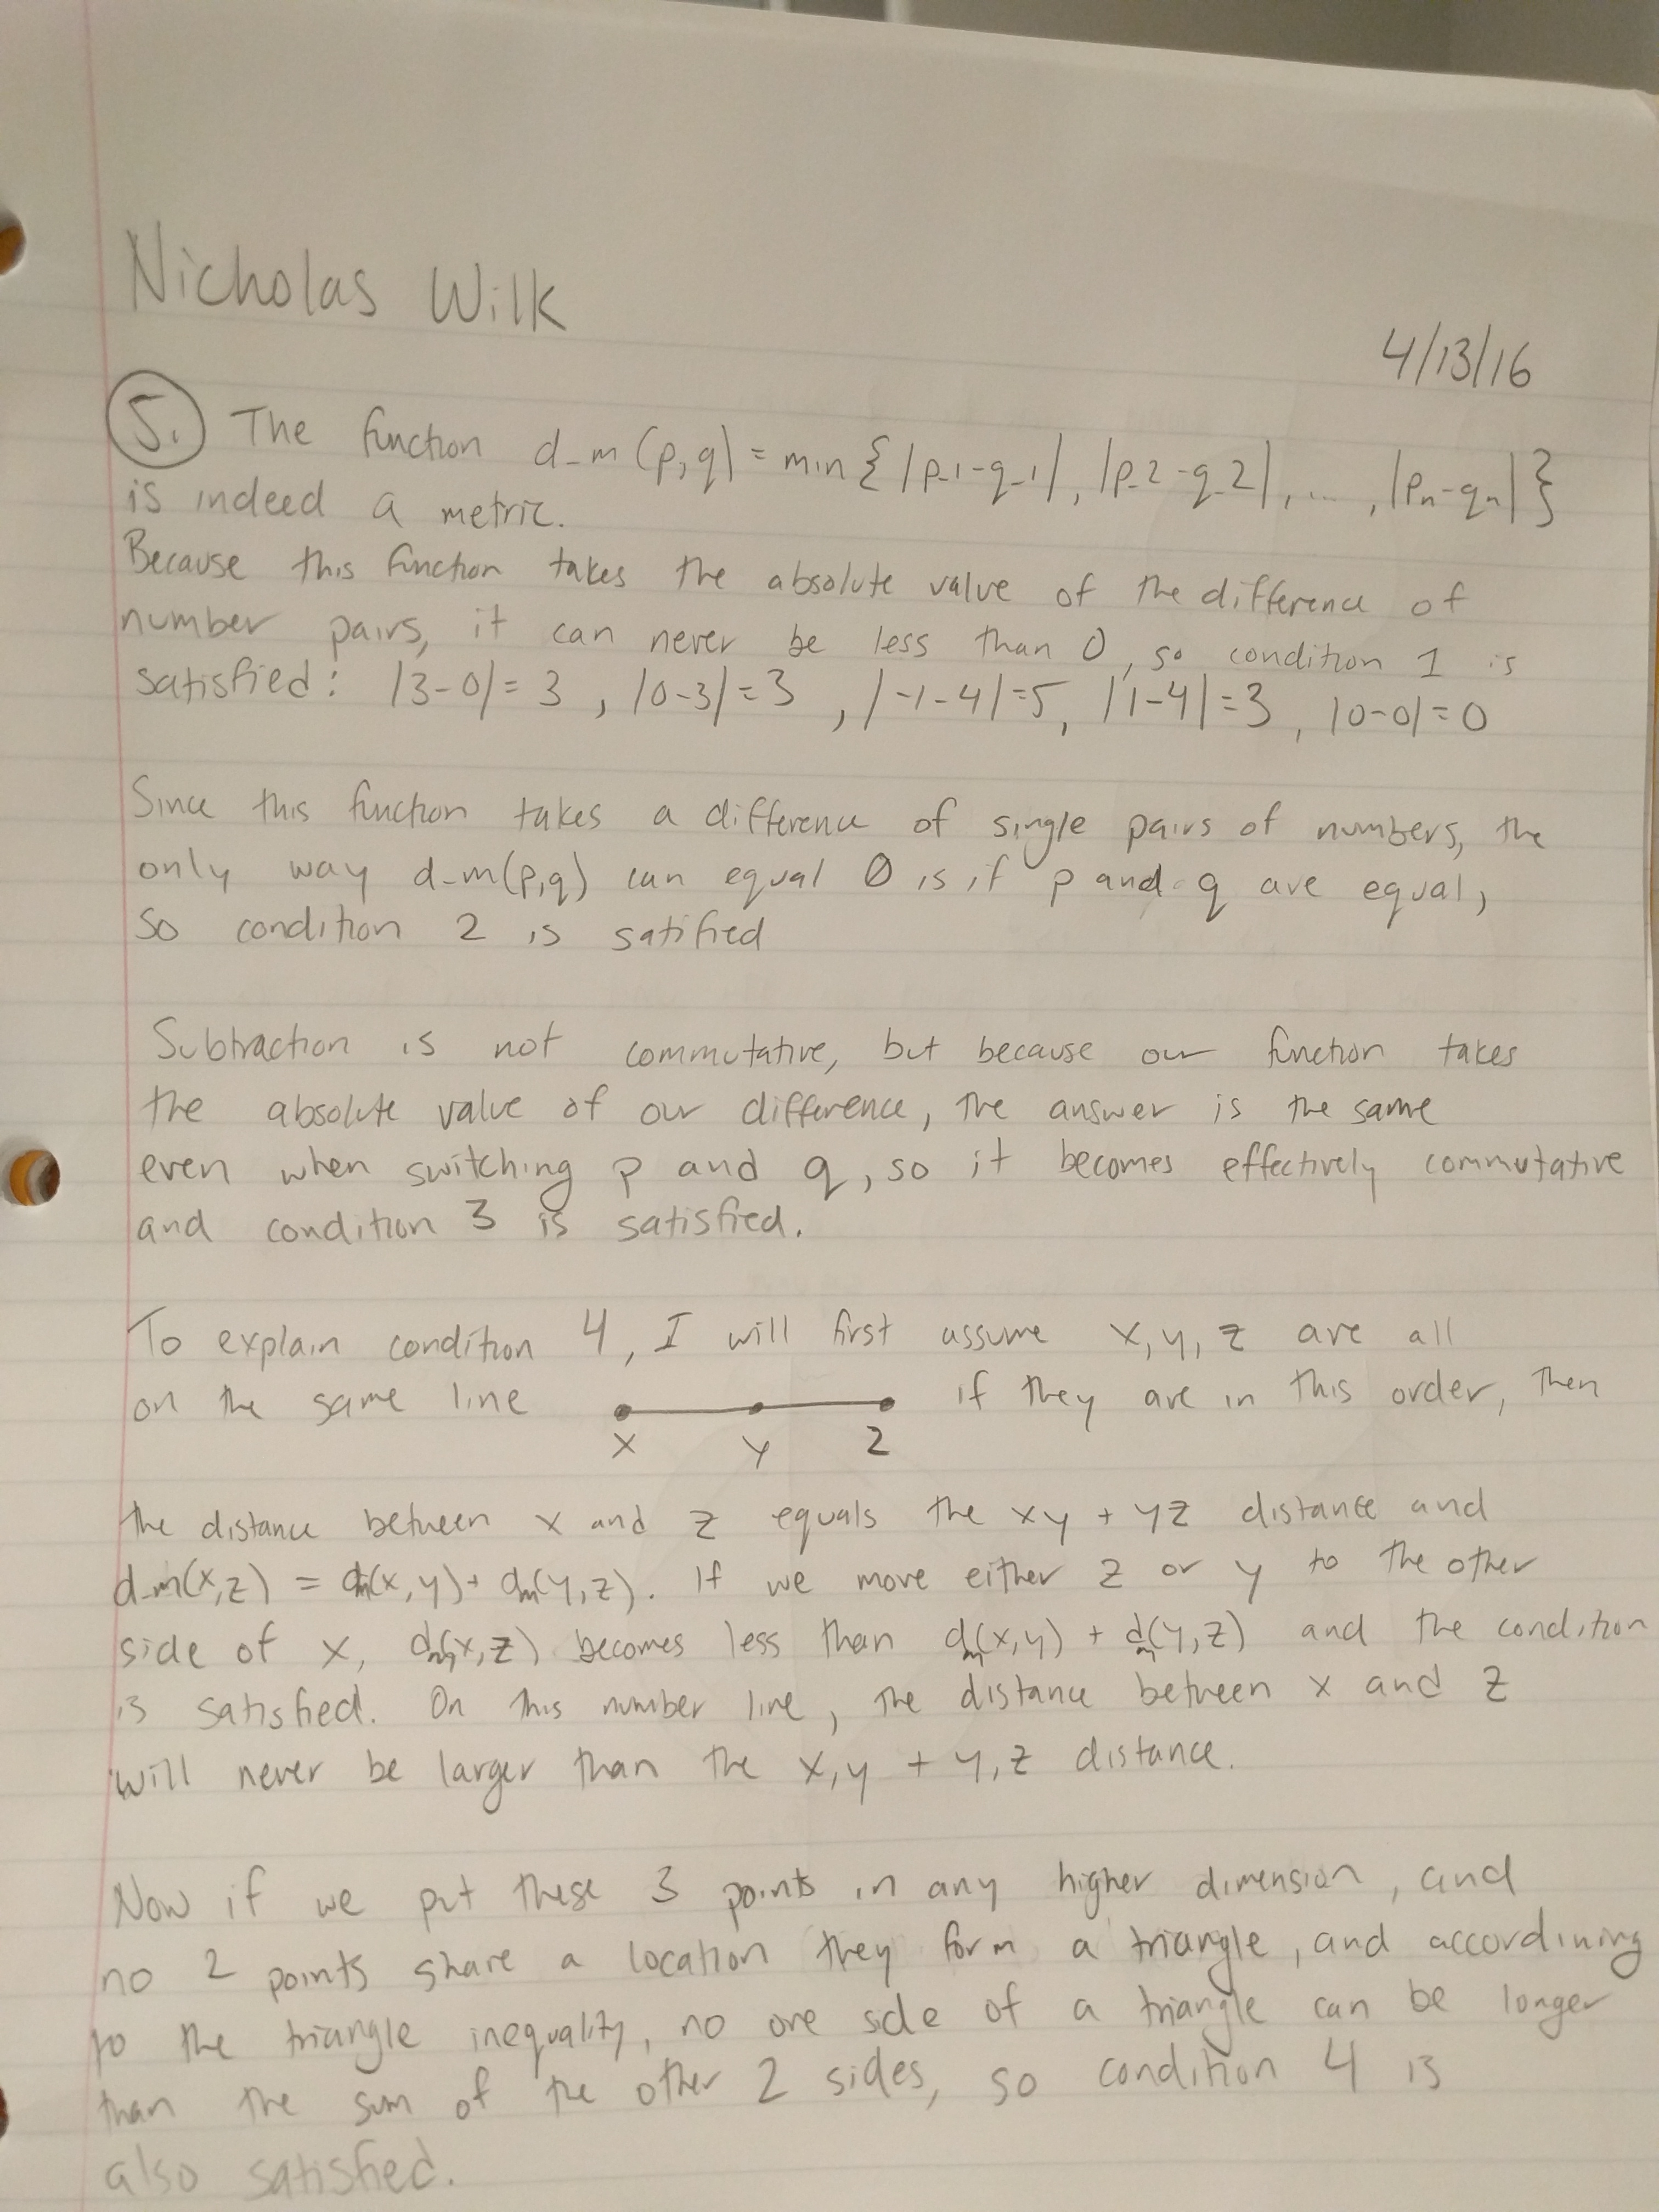 Nicholas Wilk
4/13/16
5. The function d_m(p,q) = min {|p_1-q_1|, |p_2-q_2|, ..., |pₙ-qₙ|}
is indeed a metric.
Because this function takes the absolute value of the difference of
number pairs, it can never be less than 0, so condition 1 is
satisfied: |3-0|=3, |0-3|=3, |-1-4|=5, |1-4|=3, |0-0|=0
Since this function takes a difference of single pairs of numbers, the
only way d_m(p,q) can equal 0 is if p and q are equal,
so condition 2 is satified
Subtraction is not commutative, but because our function takes
the absolute value of our difference, the answer is the same
even when switching p and q, so it becomes effectively commutative
and condition 3 is satisfied.
To explain condition 4, I will first assume x, y, z are all
on the same line x y z if they are in this order, then
the distance between x and z equals the xy + yz distance and
d_m(x,z) = dm(x,y) + dm(y,z). If we move either z or y to the other
side of x, dm(x,z) becomes less than dm(x,y) + dm(y,z) and the condition
is satisfied. On this number line, the distance between x and z
will never be larger than the x,y + y,z distance.
Now if we put these 3 points in any higher dimension, and
no 2 points share a location they form a triangle, and accordining
to the triangle inequality, no one side of a triangle can be longer
than the sum of the other 2 sides, so condition 4 is
also satisfied.